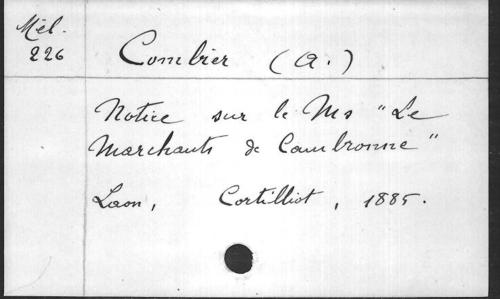 Mél.
226
Combier (A.)
Notice sur le Ms "Le
Marchants de Cambronne"
Laon, Cortilliot, 1885.